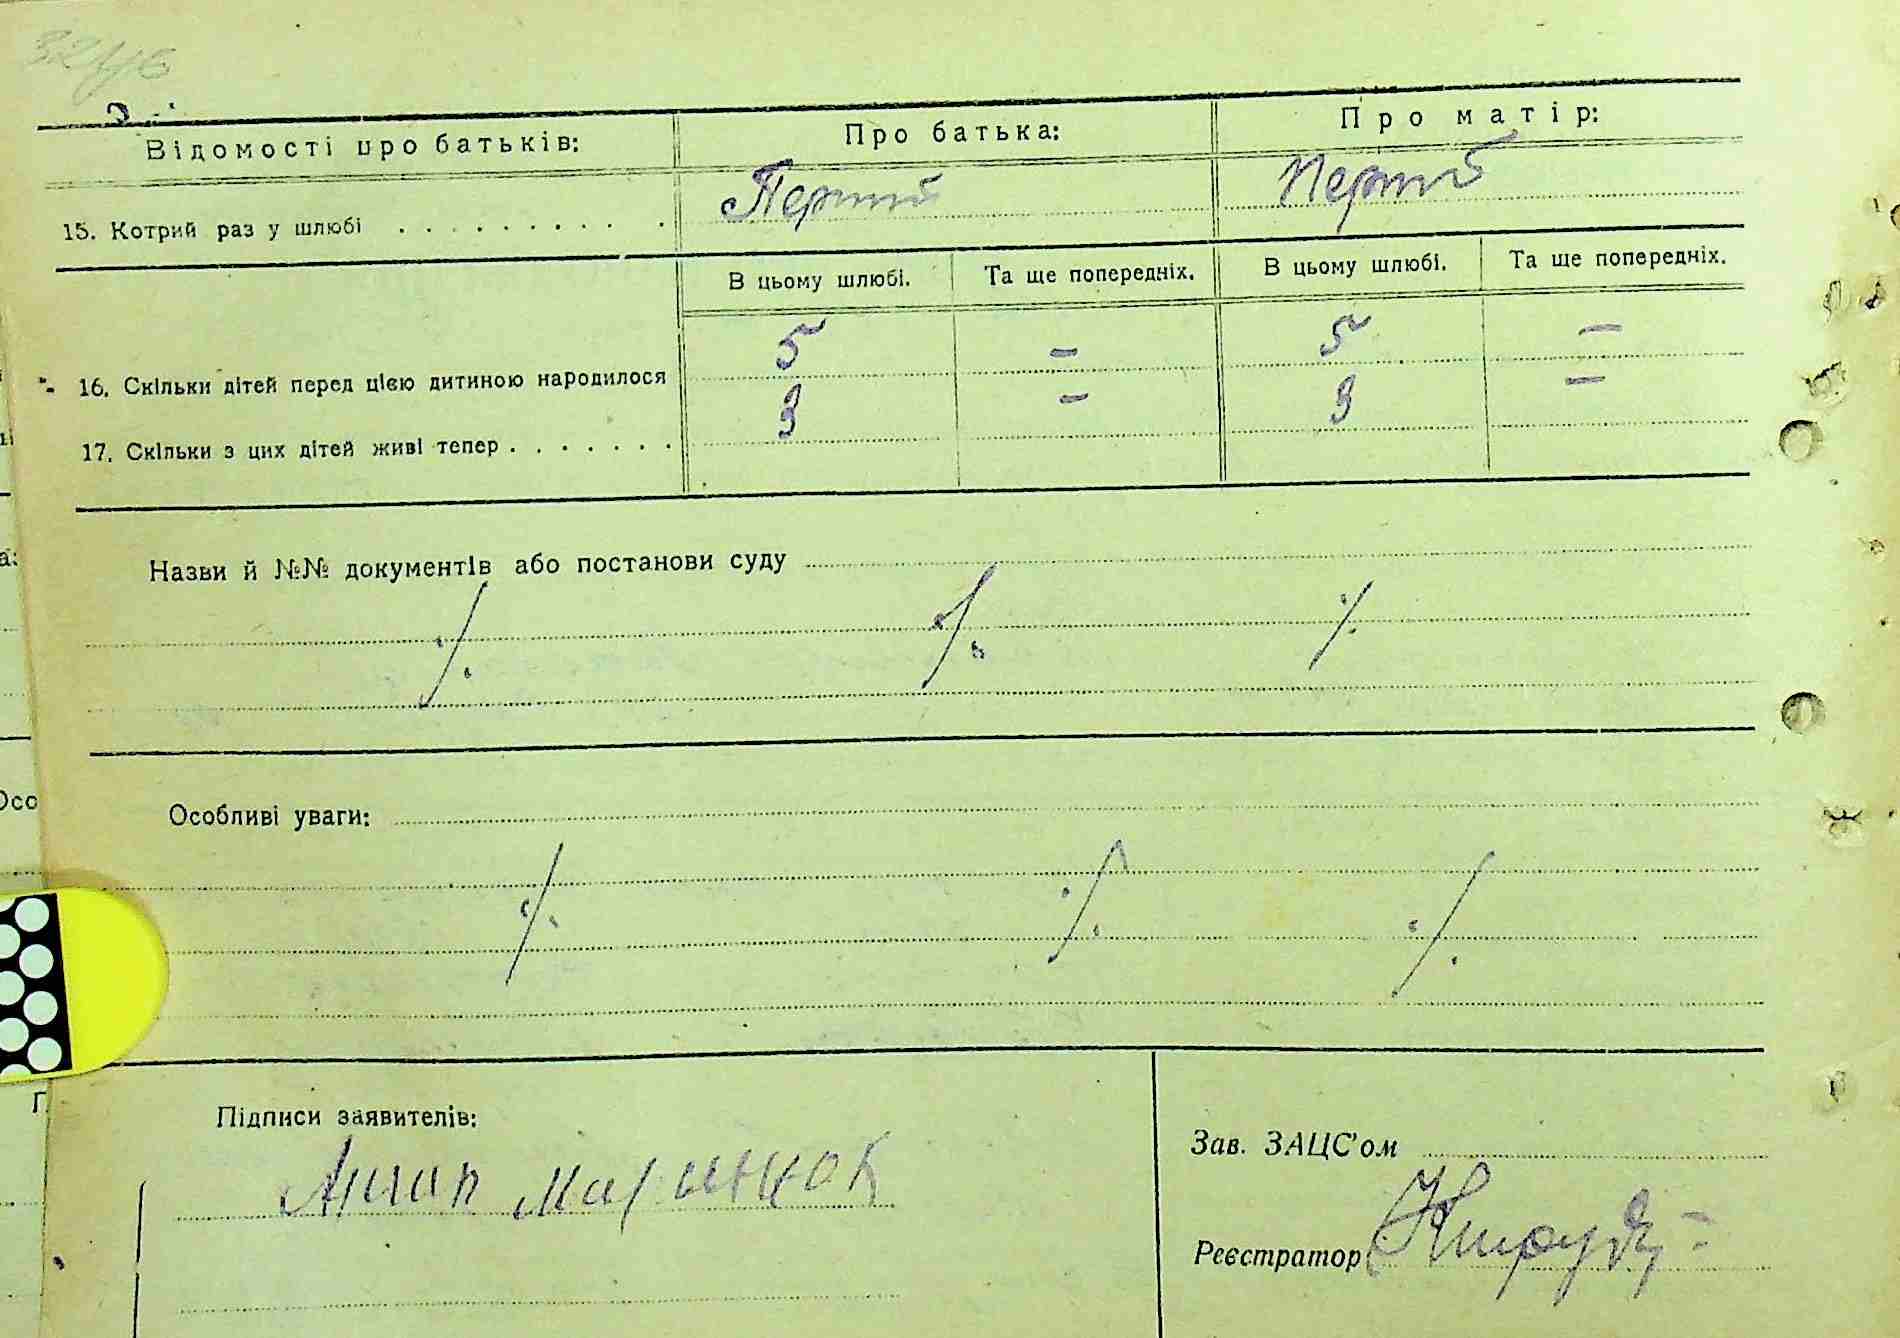 Відомості про батьків: Про батька: Про матір:
15. Котрий раз у шлюбі . . . . . . . . . . Перший Перший
В цьому шлюбі. Та ще попередніх. В цьому шлюбі. Та ще попередніх.
16. Скільки дітей перед цією дитиною народилося 5 — 5 —
17. Скільки з цих дітей живі тепер . . . . . . . 3 — 3 —
Назви й №№ документів або постанови суду
Особливі уваги:
Підписи заявителів:
Зав. ЗАЦС'ом
Реєстратор